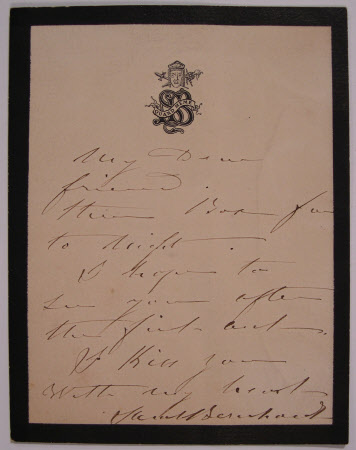 QUAND MEME
SB
My Dear
friend.
then Box for
to night.
I hope to
see you after
the first act.
I Kiss you
With my heart
Sarah Bernhardt